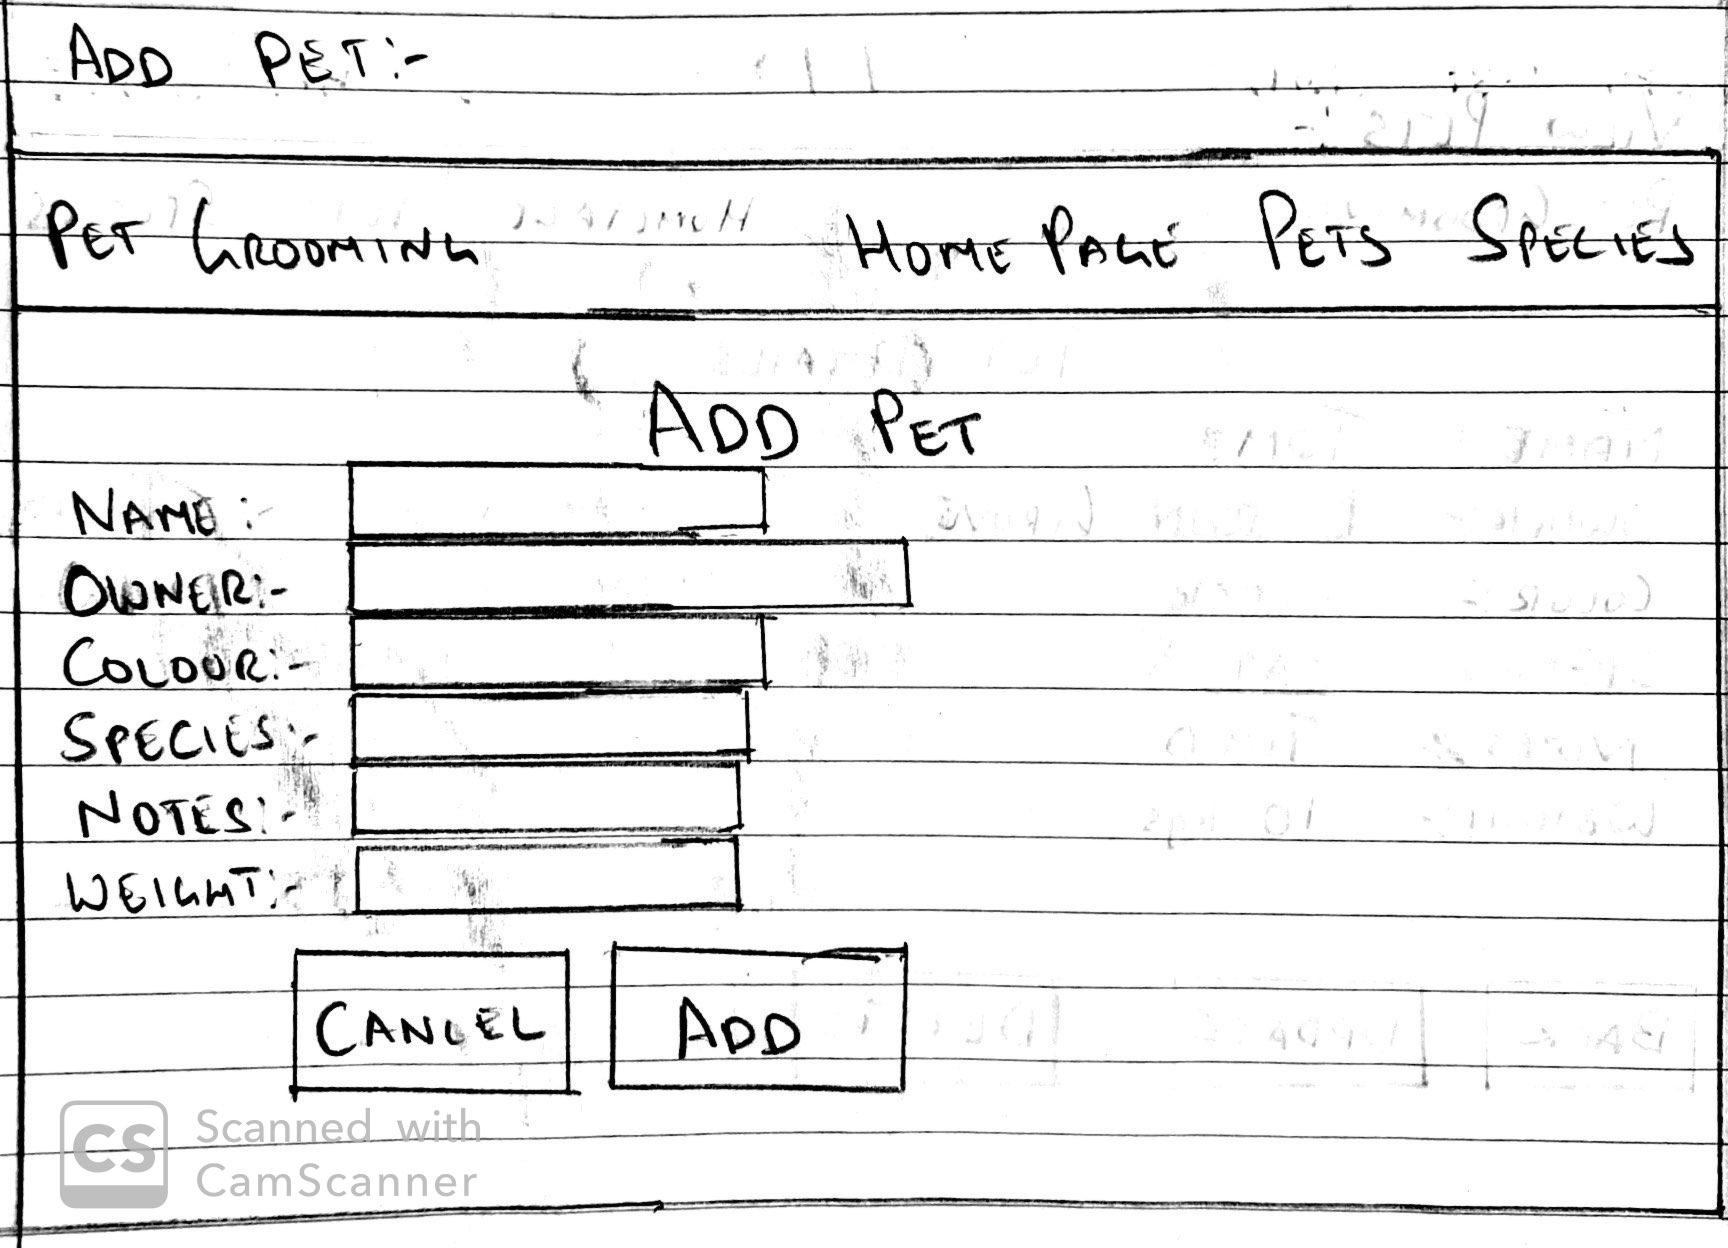 ADD PET:-
PET GROOMING HOME PAGE PETS SPECIES
ADD PET
NAME:-
OWNER:-
COLOUR:-
SPECIES:-
NOTES:-
WEIGHT:-
CANCEL ADD
CS Scanned with
CamScanner